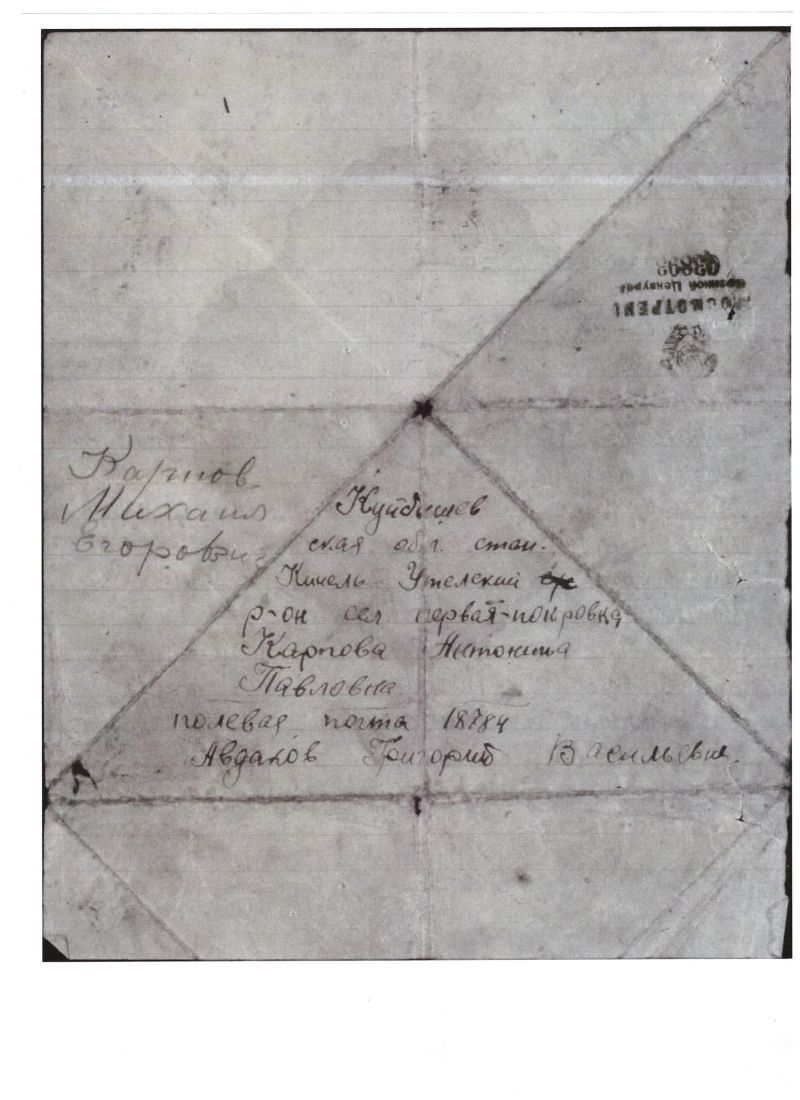 02802
Военной Цензурой
ПРОСМОТРЕНО
Карпов
Михаил
Егорович
Куйбышев
ская обл. стан.
Кинель Утелский
р-он сел. первая-покровка
Карпова Антонина
Павловна
полевая почта 18784
Авдаков Григорий Васильевич.